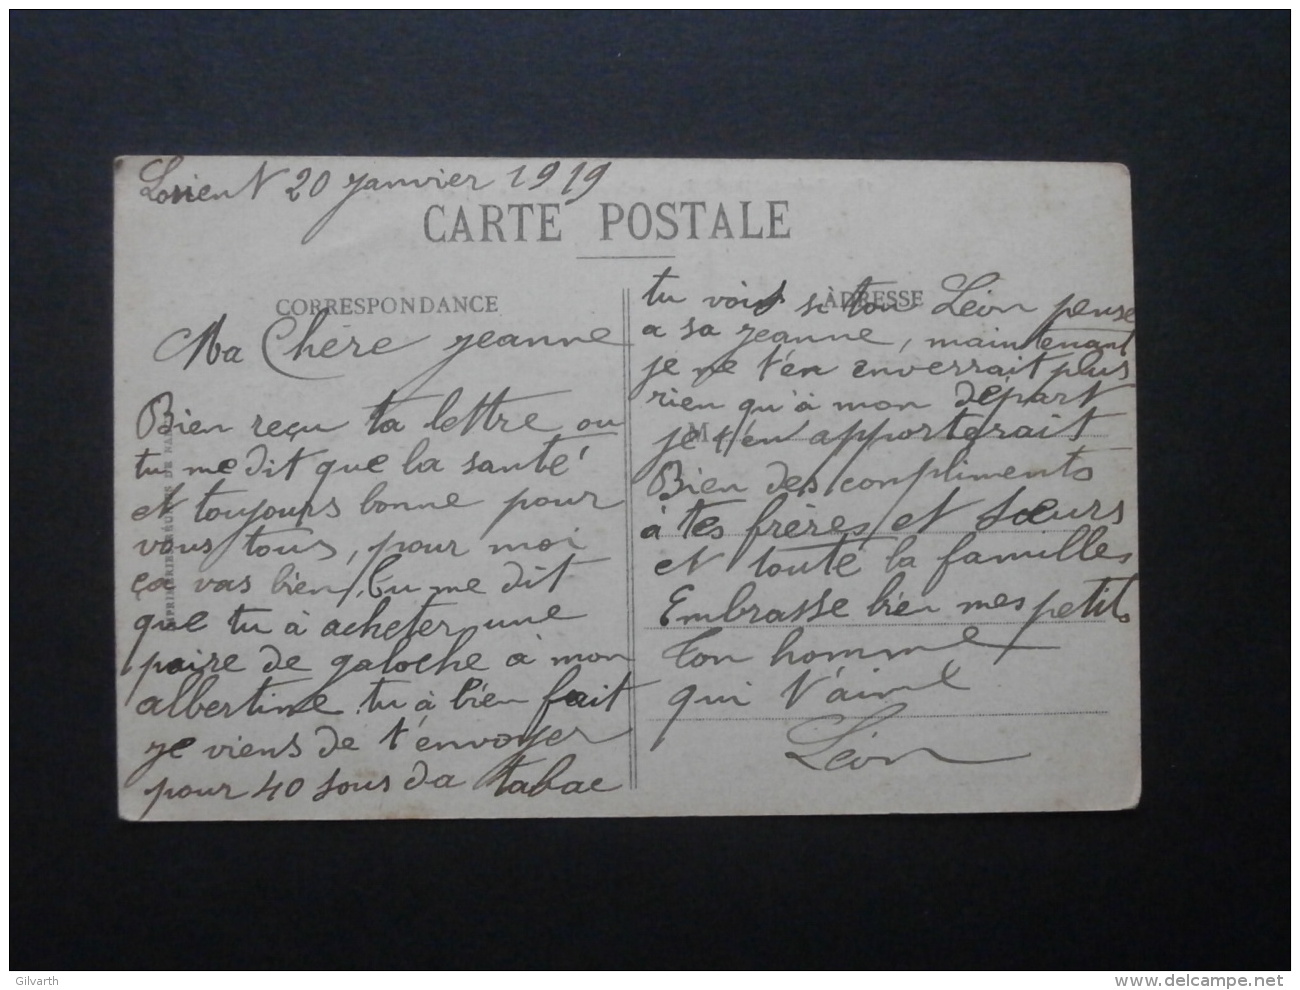 Lorient 20 Janvier 1919
CARTE POSTALE
CORRESPONDANCE
Ma Chère Jeanne
Bien reçu ta lettre ou
tu me dit que la santé
et toujours bonne pour
vous tous, pour moi
ça vas bien, tu me dit
que tu à acheter une
paire de galoche à mon
albertine tu à bien fait
je viens de t'envoyer
pour 40 sous da tabac
ADRESSE
tu vois si ton Léon pense
a sa Jeanne, maintenant
je ne t'en enverrait plus
rien qu'à mon départ
M
je t'en apporterait
Bien des conpliments
à tes frères et sœurs
et toute la familles
Embrasse bien mes petits
Ton homme
qui t'aime
Léon
Gilvarth
www.delcampe.net